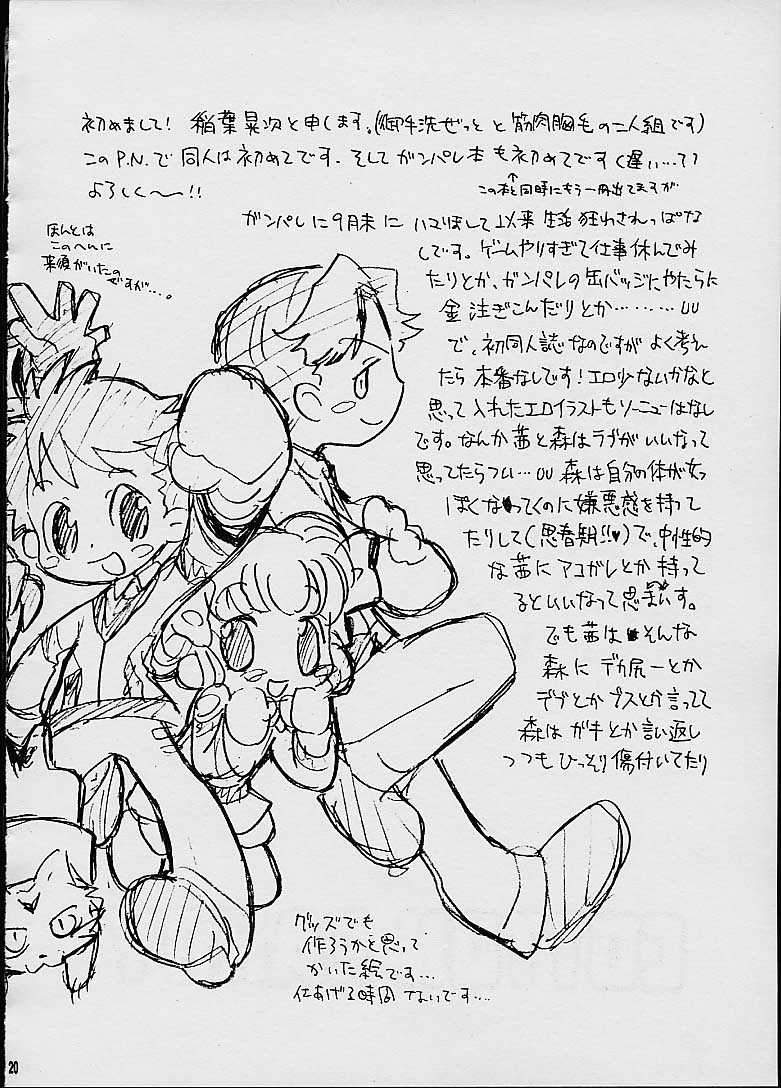 初めまして! 稲葉晃次と申します。(御手洗ぜっと と 筋肉胸毛の二人組です)
このP.N.で同人は初めてです。そしてガンパレ本も初めてです(遅い…??
よろしく〜!!
↑
この本と同時にもう一冊出てますが
ガンパレに9月末に ハマりまして以来 生活狂わされっぱな
しです。ゲームやりすぎて仕事休んでみ
たりとか、ガンパレの缶バッジにやたらに
金注ぎこんだりとか………UU
で、初同人誌なのですがよく考え
たら本番なしです!エロ少ないかなと
思って入れたエロイラストもソーニューはなし
です。なんか茜と森はラブがいいなって
思ってたらつい…UU 森は自分の体が女っ
ぽくなってくのに嫌悪感を持って
たりして(思春期!!♥)で、中性的
な茜にアコガレとか持って
るといいなって思います。
でも茜はそんな
森にデカ尻ーとか
デブとかブスとか言ってて
森はガキとか言い返し
つつもひっそり傷付いてたり
ほんとは
このへんに
来須がいたの
ですが…。
グッズでも
作ろうかと思って
かいた絵です…
仕あげる時間 ないです…
20